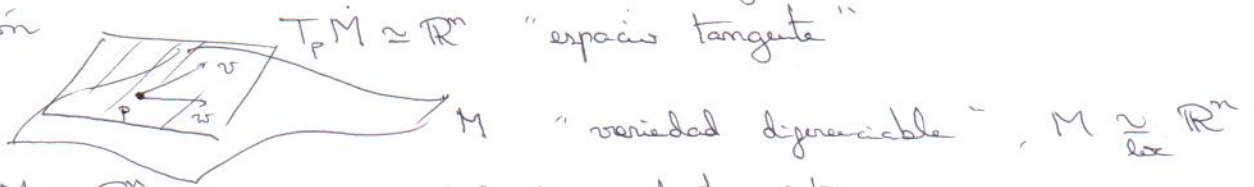 ón T_pM ≃ ℝⁿ "espacio tangente"
v
p w
M "variedad diferenciable", M ≃ ℝⁿ
loc